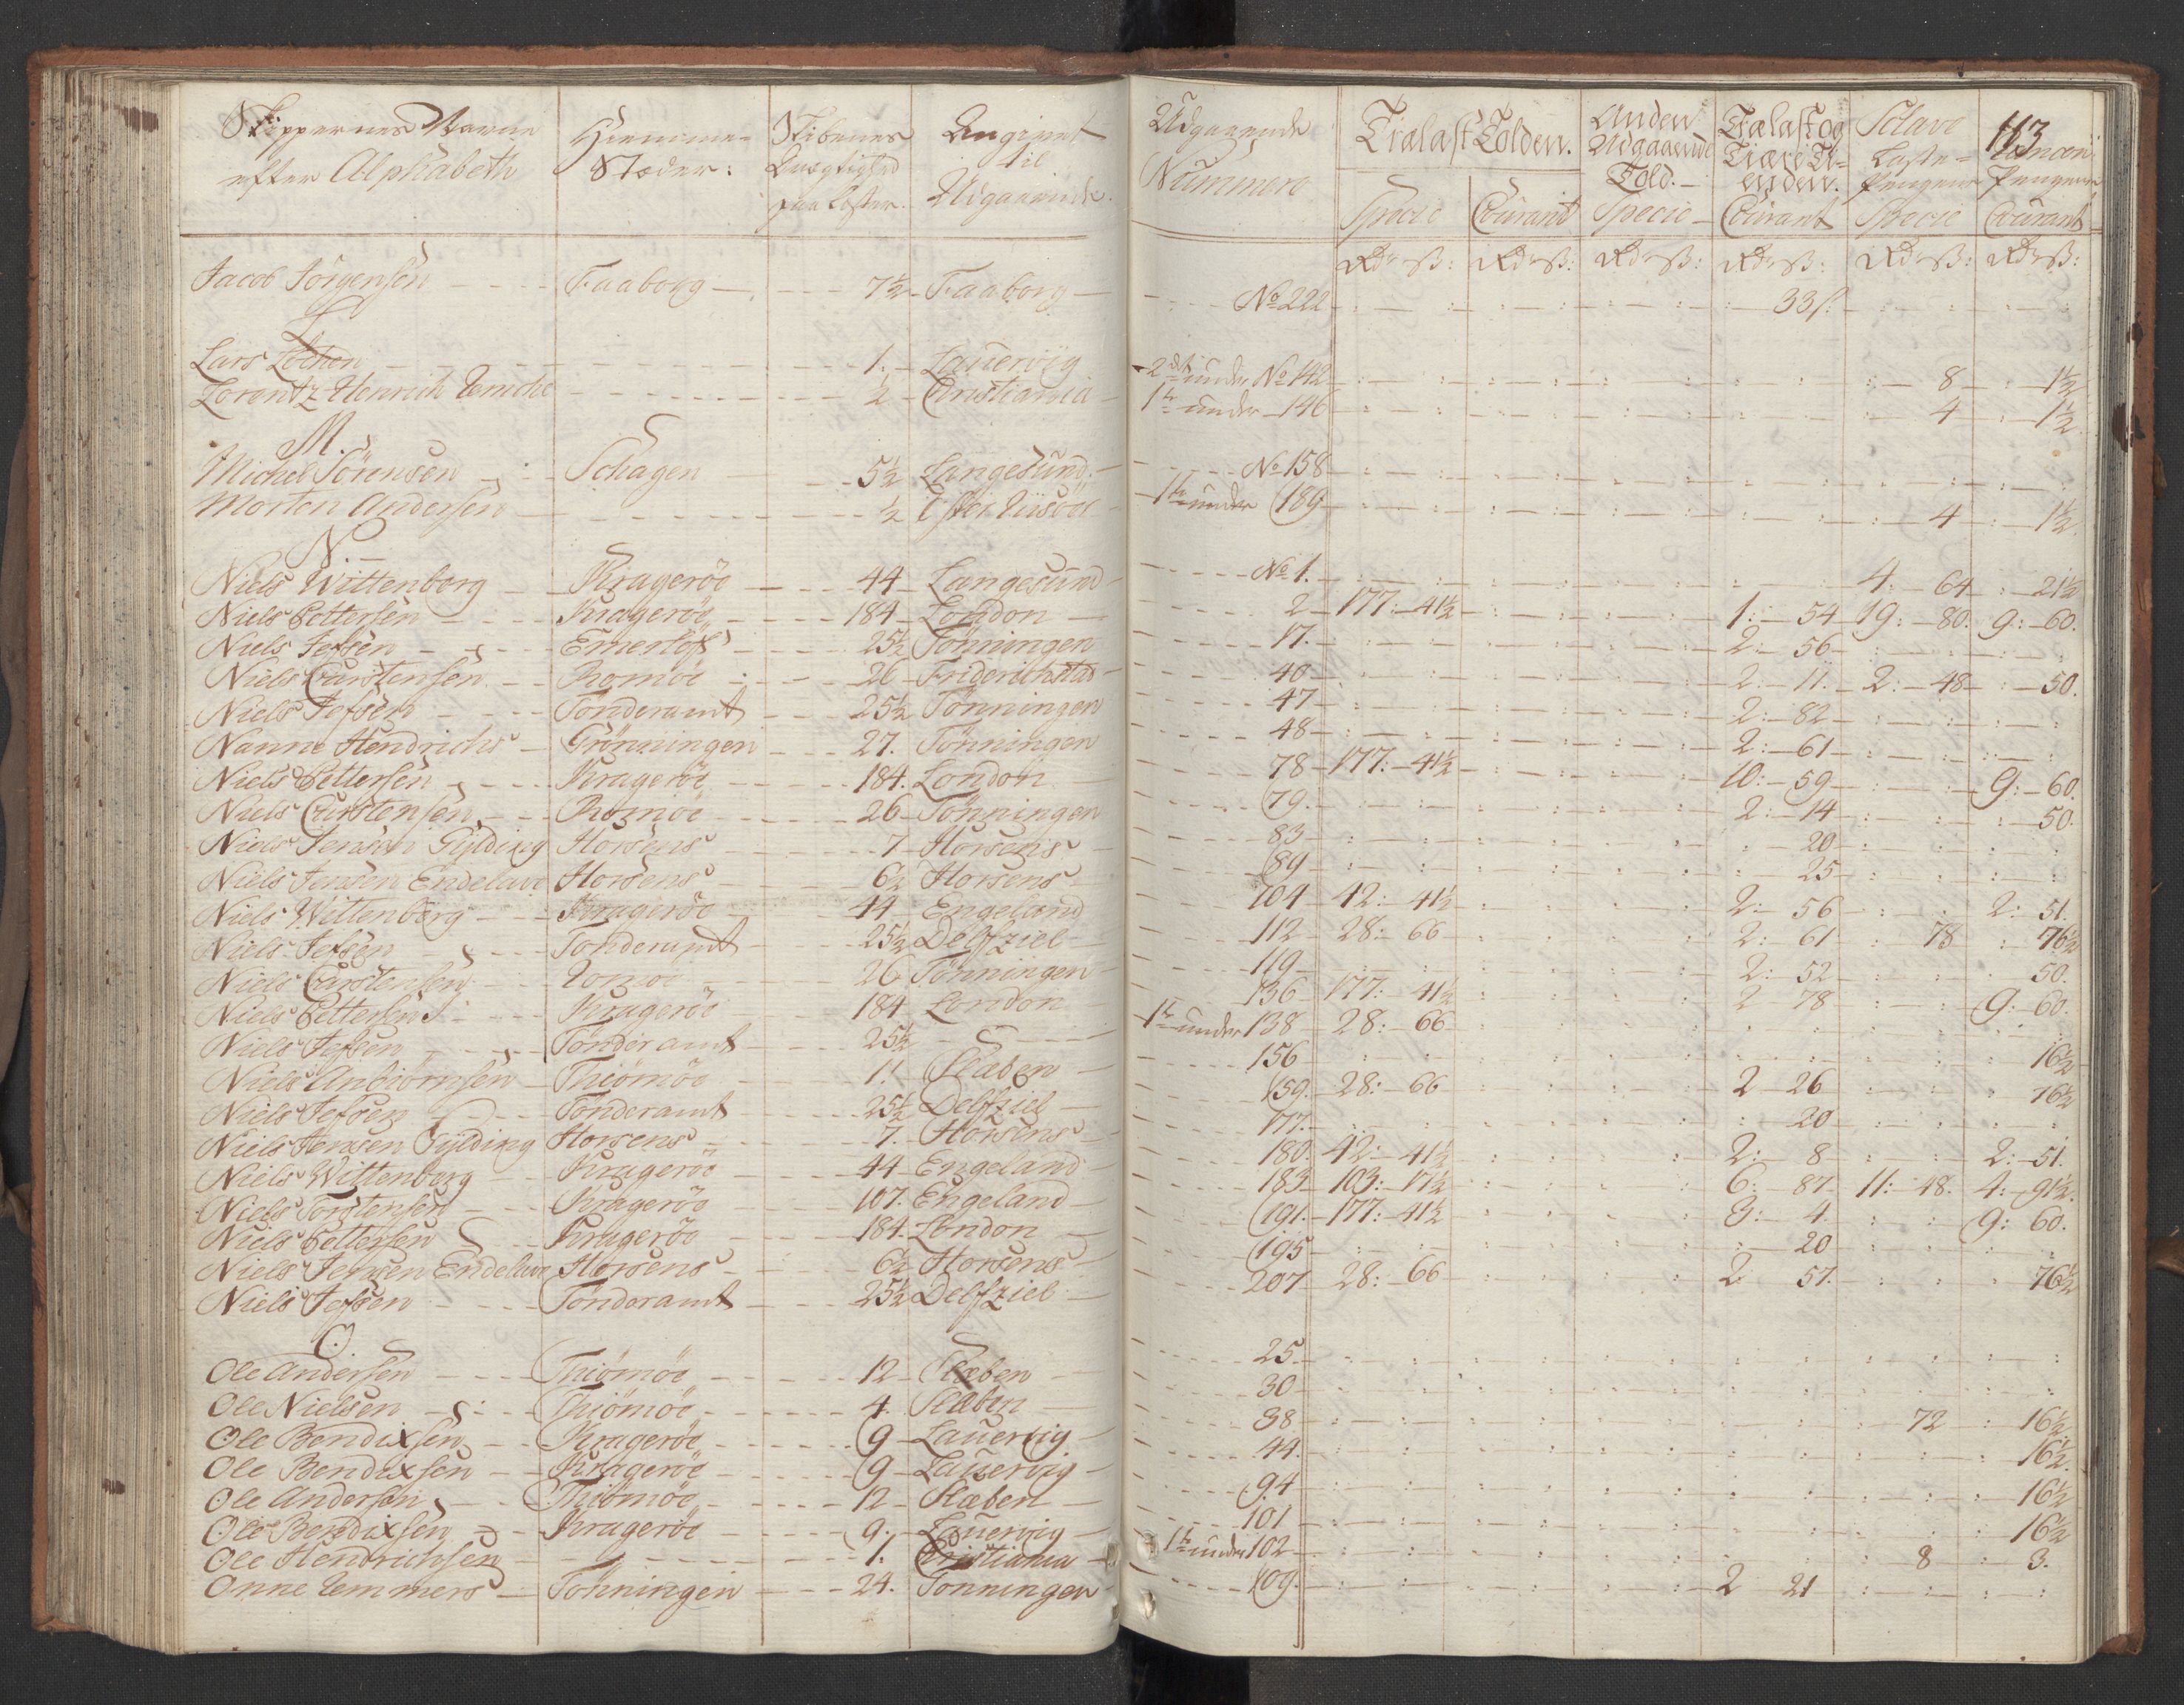 113
Skippernes Navne efter Alphabeth | Hiemme-Stæder: | Skibenes Drægtighed paa Læster. | Angivet til Udgaaende. | Udgaaende Nummere | Trælast Tolden. Specie | Courant | Anden Udgaaende Told. Specie | Trælast og Tiære Tienden. Courant | Sclave Læste-Pengene Specie | Pengene Courant
Rd. ß: | Rd. ß: | Rd. ß: | Rd. ß: | Rd. ß: | Rd. ß:
Jacob Jörgensen Faaborg 7½ Faaborg No 222 33 ß.
L
Lars Lochen 1. Lauervig 2de under No 142 8 1½
Lorentz Henrich ½ Christiania 1te under 146 4 1½
M.
Michel Sörensen Schagen 5½ Langesund No 158
Morten Andersen ½ Öster Riisöer 1te under 189 4 1½
N.
Niels Wittenborg Kragerøe 44 Langesund No 1. 4: 64 21½
Niels Pettersen Kragerøe 184 London 2 177: 41½ 1: 54 19: 80. 9: 60.
Niels Jefsen Emerlöf 25½ Tönningen 17. 2: 56
Niels Carstensen Romöe 26 Friderichstad 40 2: 11. 2: 48 50.
Niels Jefsen Tonderamt 25½ Tönningen 47 2: 82
Nanne Hendrichs Grönningen 27. Tönningen 48 2: 61
Niels Pettersen Kragerøe 184. London 78 177: 41½ 10: 59 9: 60.
Niels Carstensen Romöe 26 Tönningen 79. 2: 14 50.
Niels Jensen Gylding Horsens 7 Horsens 83 20
Niels Jensen Endelave Horsens 6½ Horsens 89 25
Niels Wittenberg Kragerøe 44 Engeland 104 42: 41½ 2: 56 2: 51.
Niels Jefsen Tonderamt 25½ Delfziel 112 28: 66 2: 61 78 76½
Niels Carstensen Romöe 26 Tönningen 119 2: 52 50.
Niels Pettersen Kragerøe 184 London 136 177: 41½ 2 78 9: 60.
Niels Jefsen Tönderamt 25½ 1te under 138 28: 66
Niels Anbiörnsen Thiömöe 11 Slæben 156 16½
Niels Jefsen Tönderamt 25½ Delfziel 159. 28: 66 2 26 76½
Niels Jensen Gylding Horsens 7. Horsens 177. 20
Niels Wittenberg Kragerøe 44 Engeland 180. 42: 41½ 2: 8 2: 51.
Niels Torstensen Kragerøe 107. Engeland 183 103: 17½ 6: 87 11: 48. 4: 91½.
Niels Pettersen Kragerøe 184. London 191. 177: 41½ 3: 4 9: 60.
Niels Jensen Endelave Horsens 6½ Horsens 195 20
Niels Jefsen Tönderamt 25½ Delfziel 207 28: 66 2 57. 76½
O.
Ole Andersen Thiömöe 12 Slæben 25.
Ole Nielsen Thiömöe 4. Slæben 30
Ole Bendixsen Kragerøe 9 Lauervig 38 72 16½
Ole Bendixsen Kragerøe 9 Lauervig 44. 16½.
Ole Andersen Thiömöe 12 Slæben 94 16½
Ole Bendixsen Kragerøe 9. Lauervig 101 16½
Ole Hendrichsen 1. Christiania 1te under 102 8 3.
Onne Emmers Tönningen 24. Tönningen 109. 2 21